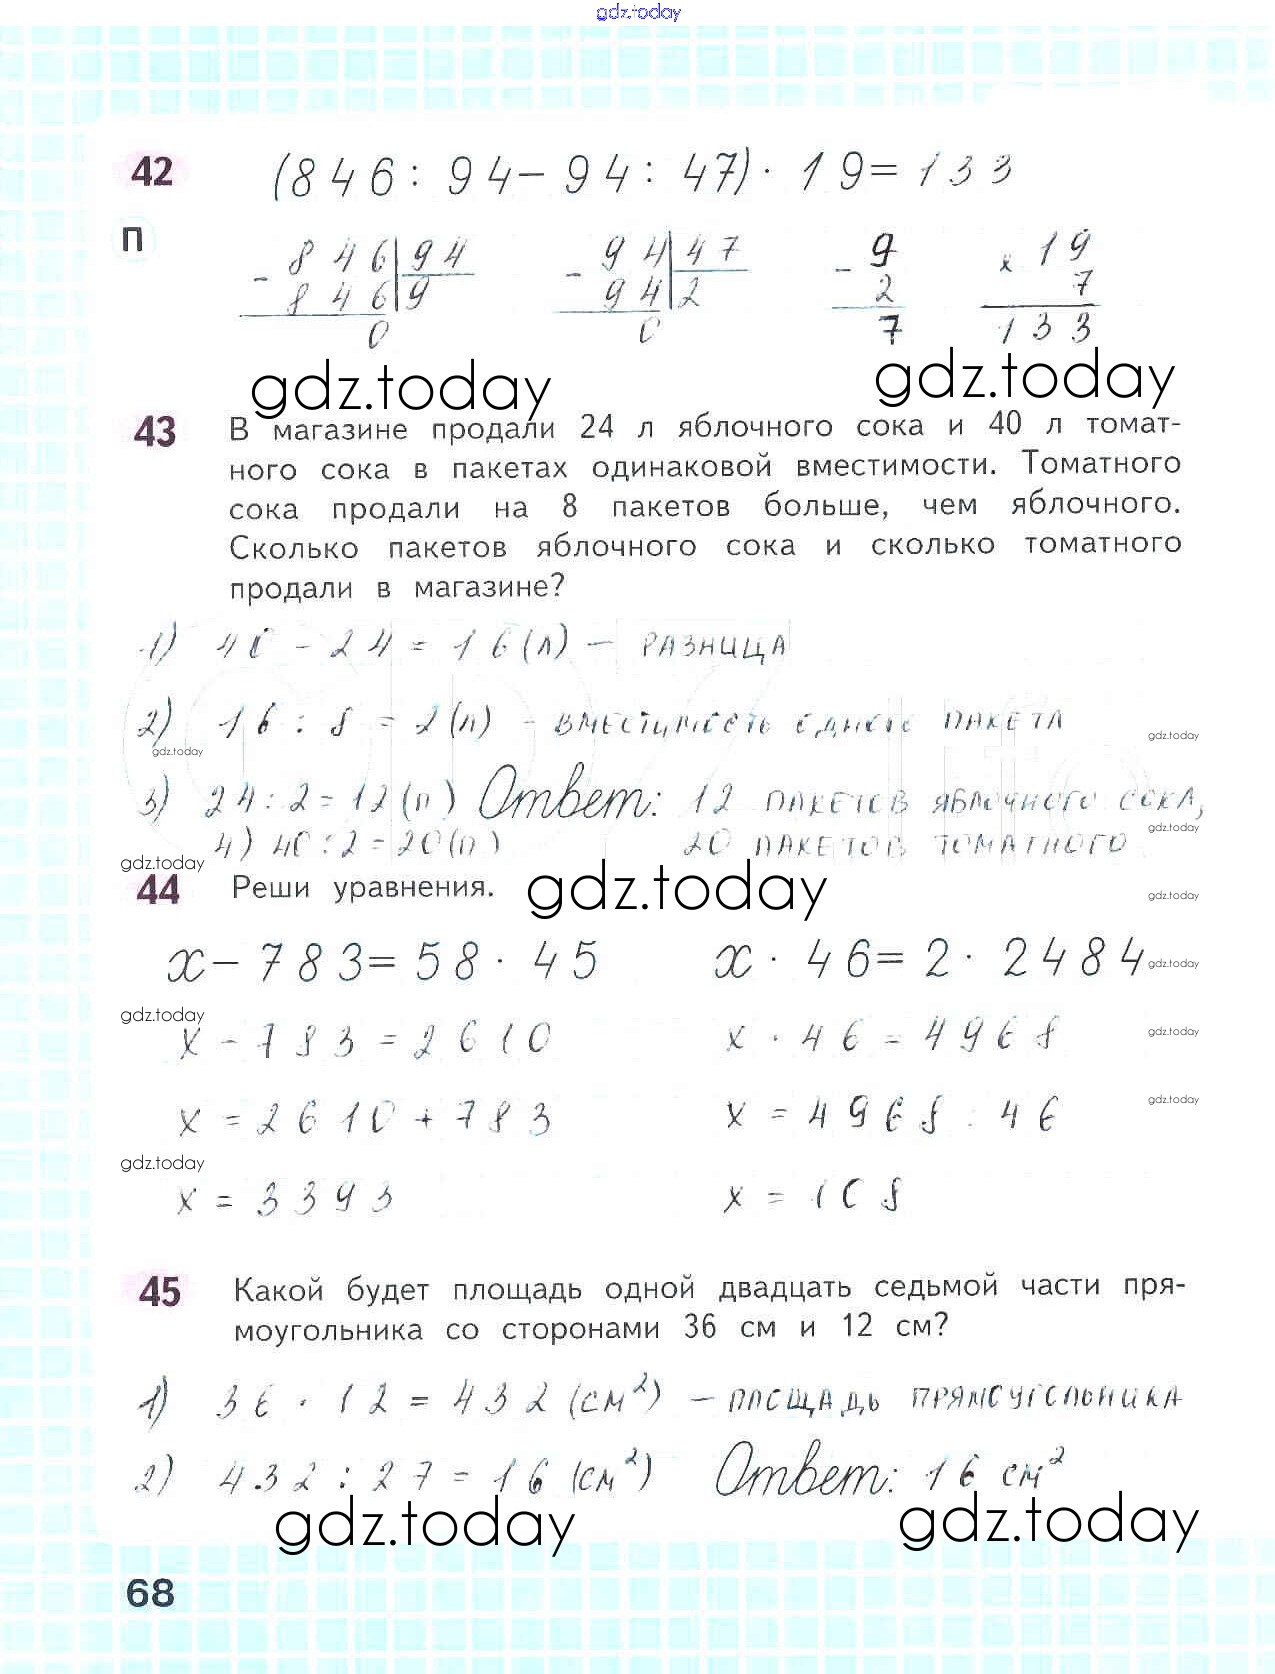 gdz.today
42 (846 : 94 - 94 : 47) · 19 = 133
П
- 846 | 94 - 94 | 47 - 9 x 19
846 | 9 94 | 2 2 7
0 0 7 133
gdz.today gdz.today
43 В магазине продали 24 л яблочного сока и 40 л томат-
ного сока в пакетах одинаковой вместимости. Томатного
сока продали на 8 пакетов больше, чем яблочного.
Сколько пакетов яблочного сока и сколько томатного
продали в магазине?
1) 40 - 24 = 16 (л) - РАЗНИЦА
2) 16 : 8 = 2 (л) - ВМЕСТИМОСТЬ ОДНОГО ПАКЕТА
gdz.today gdz.today
3) 24 : 2 = 12 (п) Ответ: 12 ПАКЕТОВ ЯБЛОЧНОГО СОКА,
gdz.today
4) 40 : 2 = 20 (п) 20 ПАКЕТОВ ТОМАТНОГО
gdz.today
44 Реши уравнения.
gdz.today gdz.today
x - 783 = 58 · 45 x · 46 = 2 · 2484
gdz.today
gdz.today gdz.today
x - 783 = 2610 x · 46 = 4968
x = 2610 + 783 x = 4968 : 46
gdz.today
gdz.today
x = 3393 x = 108
45 Какой будет площадь одной двадцать седьмой части пря-
моугольника со сторонами 36 см и 12 см?
1) 36 · 12 = 432 (см²) - ПЛОЩАДЬ ПРЯМОУГОЛЬНИКА
2) 432 : 27 = 16 (см²) Ответ: 16 см²
gdz.today gdz.today
68